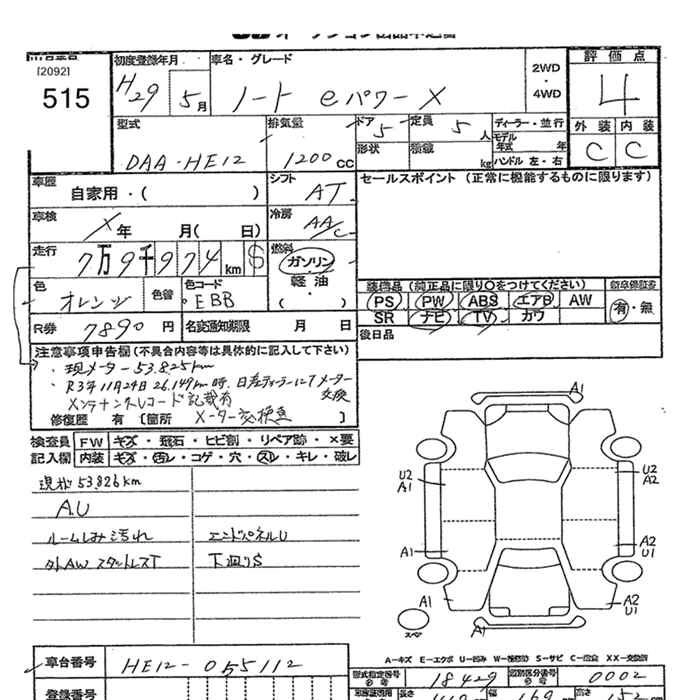 [2092]
515
初度登録年月
H29
5月
車名・グレード
ノート eパワーX
2WD
・
4WD
評価点
4
外装
内装
C
C
型式
DAA-HE12
排気量
1200cc
ドア
5
定員
5人
形状
積載
kg
ディーラー・並行
モデル
年式
年
ハンドル 左・右
車歴
自家用・( )
シフト
AT
セールスポイント (正常に機能するものに限ります)
車検
X年 月( 日)
冷房
AAC
走行
7万9千974km
$
燃料
ガソリン
軽油
・( )
色
オレンジ
色替
色コード
EBB
装備品 (純正品に限り○をつけてください)
新車保証書
PS
PW
ABS
エアB
AW
有・無
SR
ナビ
TV
カワ
R券
7890円
名変通知期限
月
日
後日品
注意事項申告欄 (不具合内容等は具体的に記入して下さい)
・現メーター53.825km
・R3年11月24日 26.149km時、日産ディーラーにてメーター交換
メンテナンスレコード記載有
修復歴 有 [箇所 メーター交換歴 ]
検査員
FW
キズ・飛石・ヒビ割・リペア跡・×要
記入欄
内装
キズ・汚れ・コゲ・穴・スレ・キレ・破レ
現状53.826km
A.U
ルームしみ汚れ
エンドパネルU
外AWスタットレスT
下廻りS
A1
U2
A1
U2
A2
A1
A2
U1
A1
A2
U1
スペア
A1
A-キズ E-エクボ U-凹み W-補修跡 S-サビ C-腐食 XX-交換済
車台番号
HE12-055112
型式指定番号
18429
類別区分番号
0002
登録番号
長さ
幅
169
高さ
152